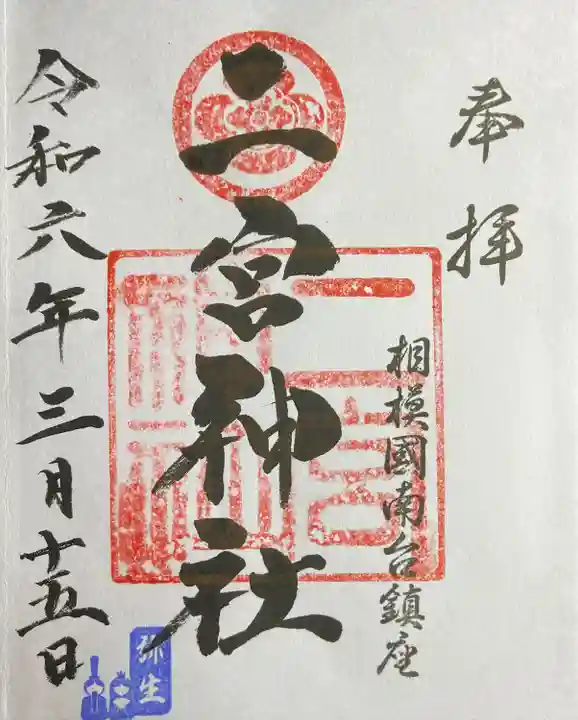 奉拝
相模國南台鎮座
二宮神社
令和六年三月十五日
弥生